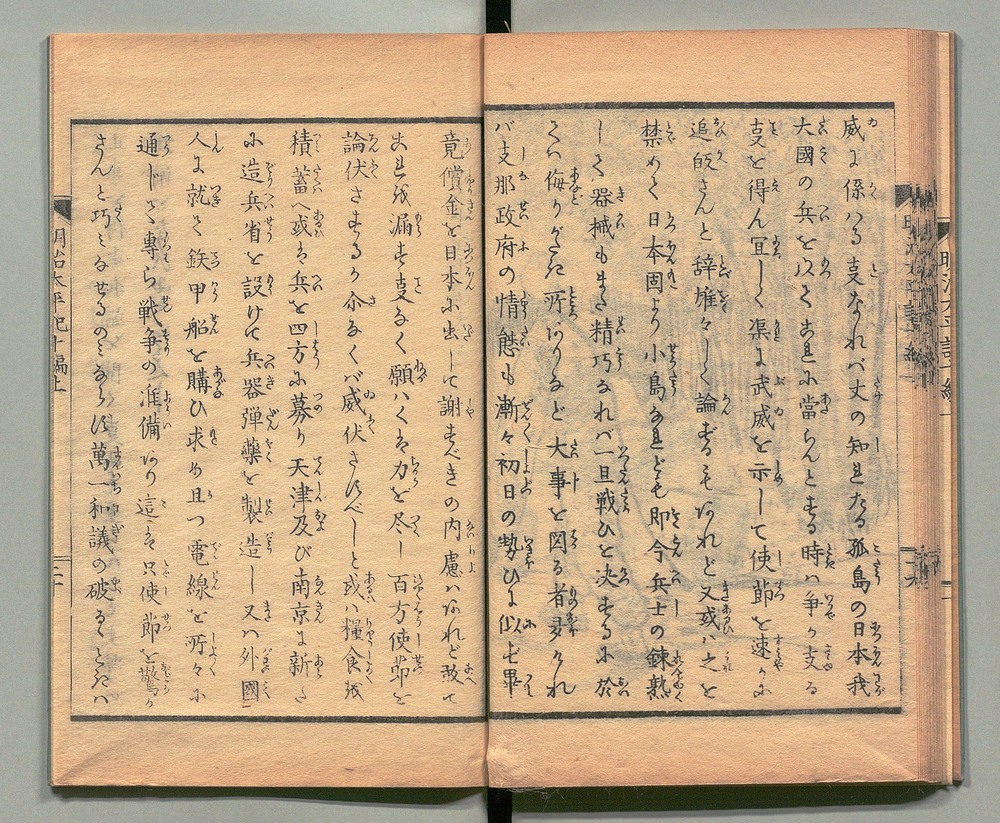 威に係はる支なれバ丈の知れたる孤島の日本我
大國の兵を以てこれに當らんとする時ハ争か支る
支を得ん冝しく渠に武威を示して使節を速かに
追皈さんと辞雄々しく論ずるもあれど又或ハ之を
禁めて日本国より小島なれども即今兵士の錬熟
しく器械もまた精巧なれバ一旦戦ひを决するに於
てハ侮りがたき所あるなど大事を図る者多けれ
バ支那政府の情態も漸々初日の勢ひに似ず畢
竟償金を日本に出して謝すべきの内慮ハあれど敢て
これを漏す支なく願ハくは力を尽し百方使節を
論伏さするか亦なくバ威伏さすべしと或ハ糧食を
積蓄へ或は兵を四方に募り天津及び南京に新た
に造兵省を設けて兵器弾藥を製造し又ハ外國
人に就て鉄甲船を購ひ求め且つ電線を所々に
通じて專ら戦争の准備あり這は只使節を驚か
さんと巧ミなせるのミならず萬一和議の破るゝときハ
明治太平記十編上